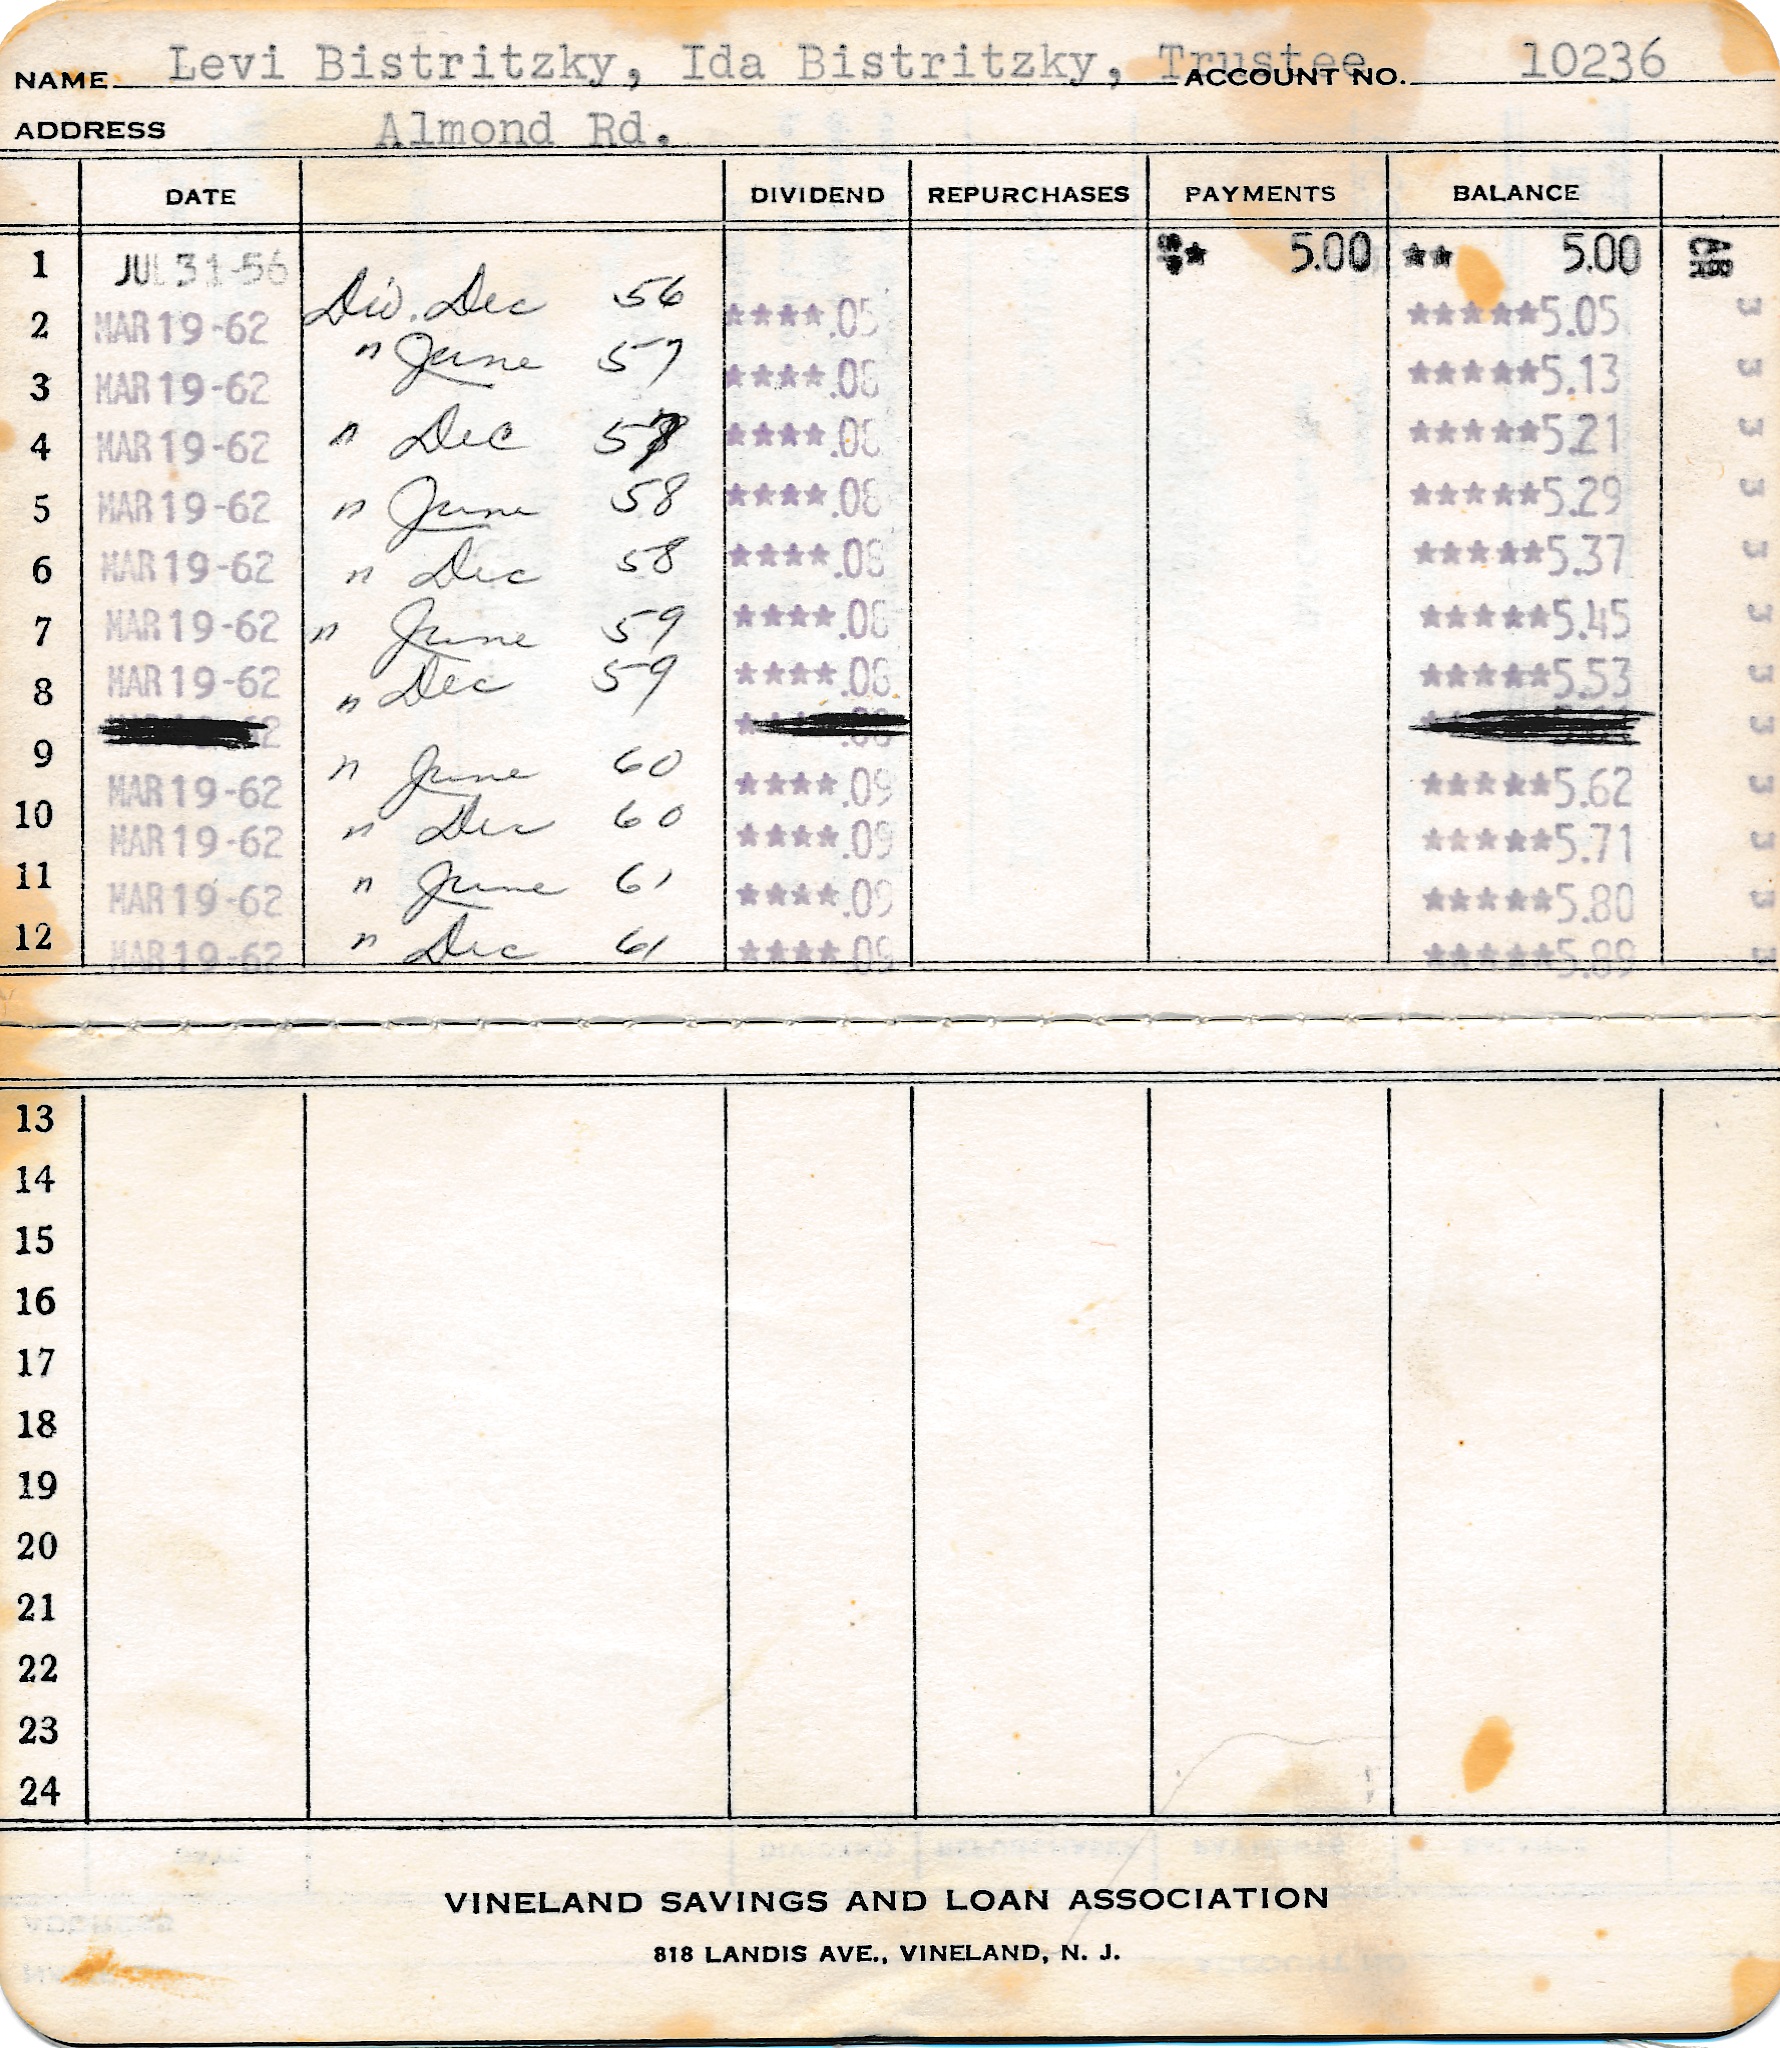 NAME Levi Bistritzky, Ida Bistritzky, Trustee ACCOUNT NO. 10236
ADDRESS Almond Rd.
DATE DIVIDEND REPURCHASES PAYMENTS BALANCE
1 JUL 31-56 5.00 ★★ 5.00
2 MAR 19-62 Div. Dec 56 ★★★★.05 ★★★★★5.05 3
3 MAR 19-62 " June 57 ★★★★.08 ★★★★★5.13 3
4 MAR 19-62 " Dec 57 ★★★★.08 ★★★★★5.21 3
5 MAR 19-62 " June 58 ★★★★.08 ★★★★★5.29 3
6 MAR 19-62 " Dec 58 ★★★★.08 ★★★★★5.37 3
7 MAR 19-62 " June 59 ★★★★.08 ★★★★★5.45 3
8 MAR 19-62 " Dec 59 ★★★★.08 ★★★★★5.53 3
3
9 MAR 19-62 " June 60 ★★★★.09 ★★★★★5.62 3
10 MAR 19-62 " Dec 60 ★★★★.09 ★★★★★5.71 3
11 MAR 19-62 " June 61 ★★★★.09 ★★★★★5.80 3
12 MAR 19-62 " Dec 61 ★★★★.09 ★★★★★5.89 3
13
14
15
16
17
18
19
20
21
22
23
24
VINELAND SAVINGS AND LOAN ASSOCIATION
818 LANDIS AVE., VINELAND, N. J.